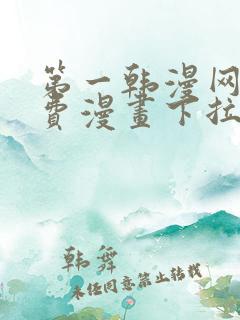 第一韩漫网
费漫画下拉
韩舞
未经同意禁止转载